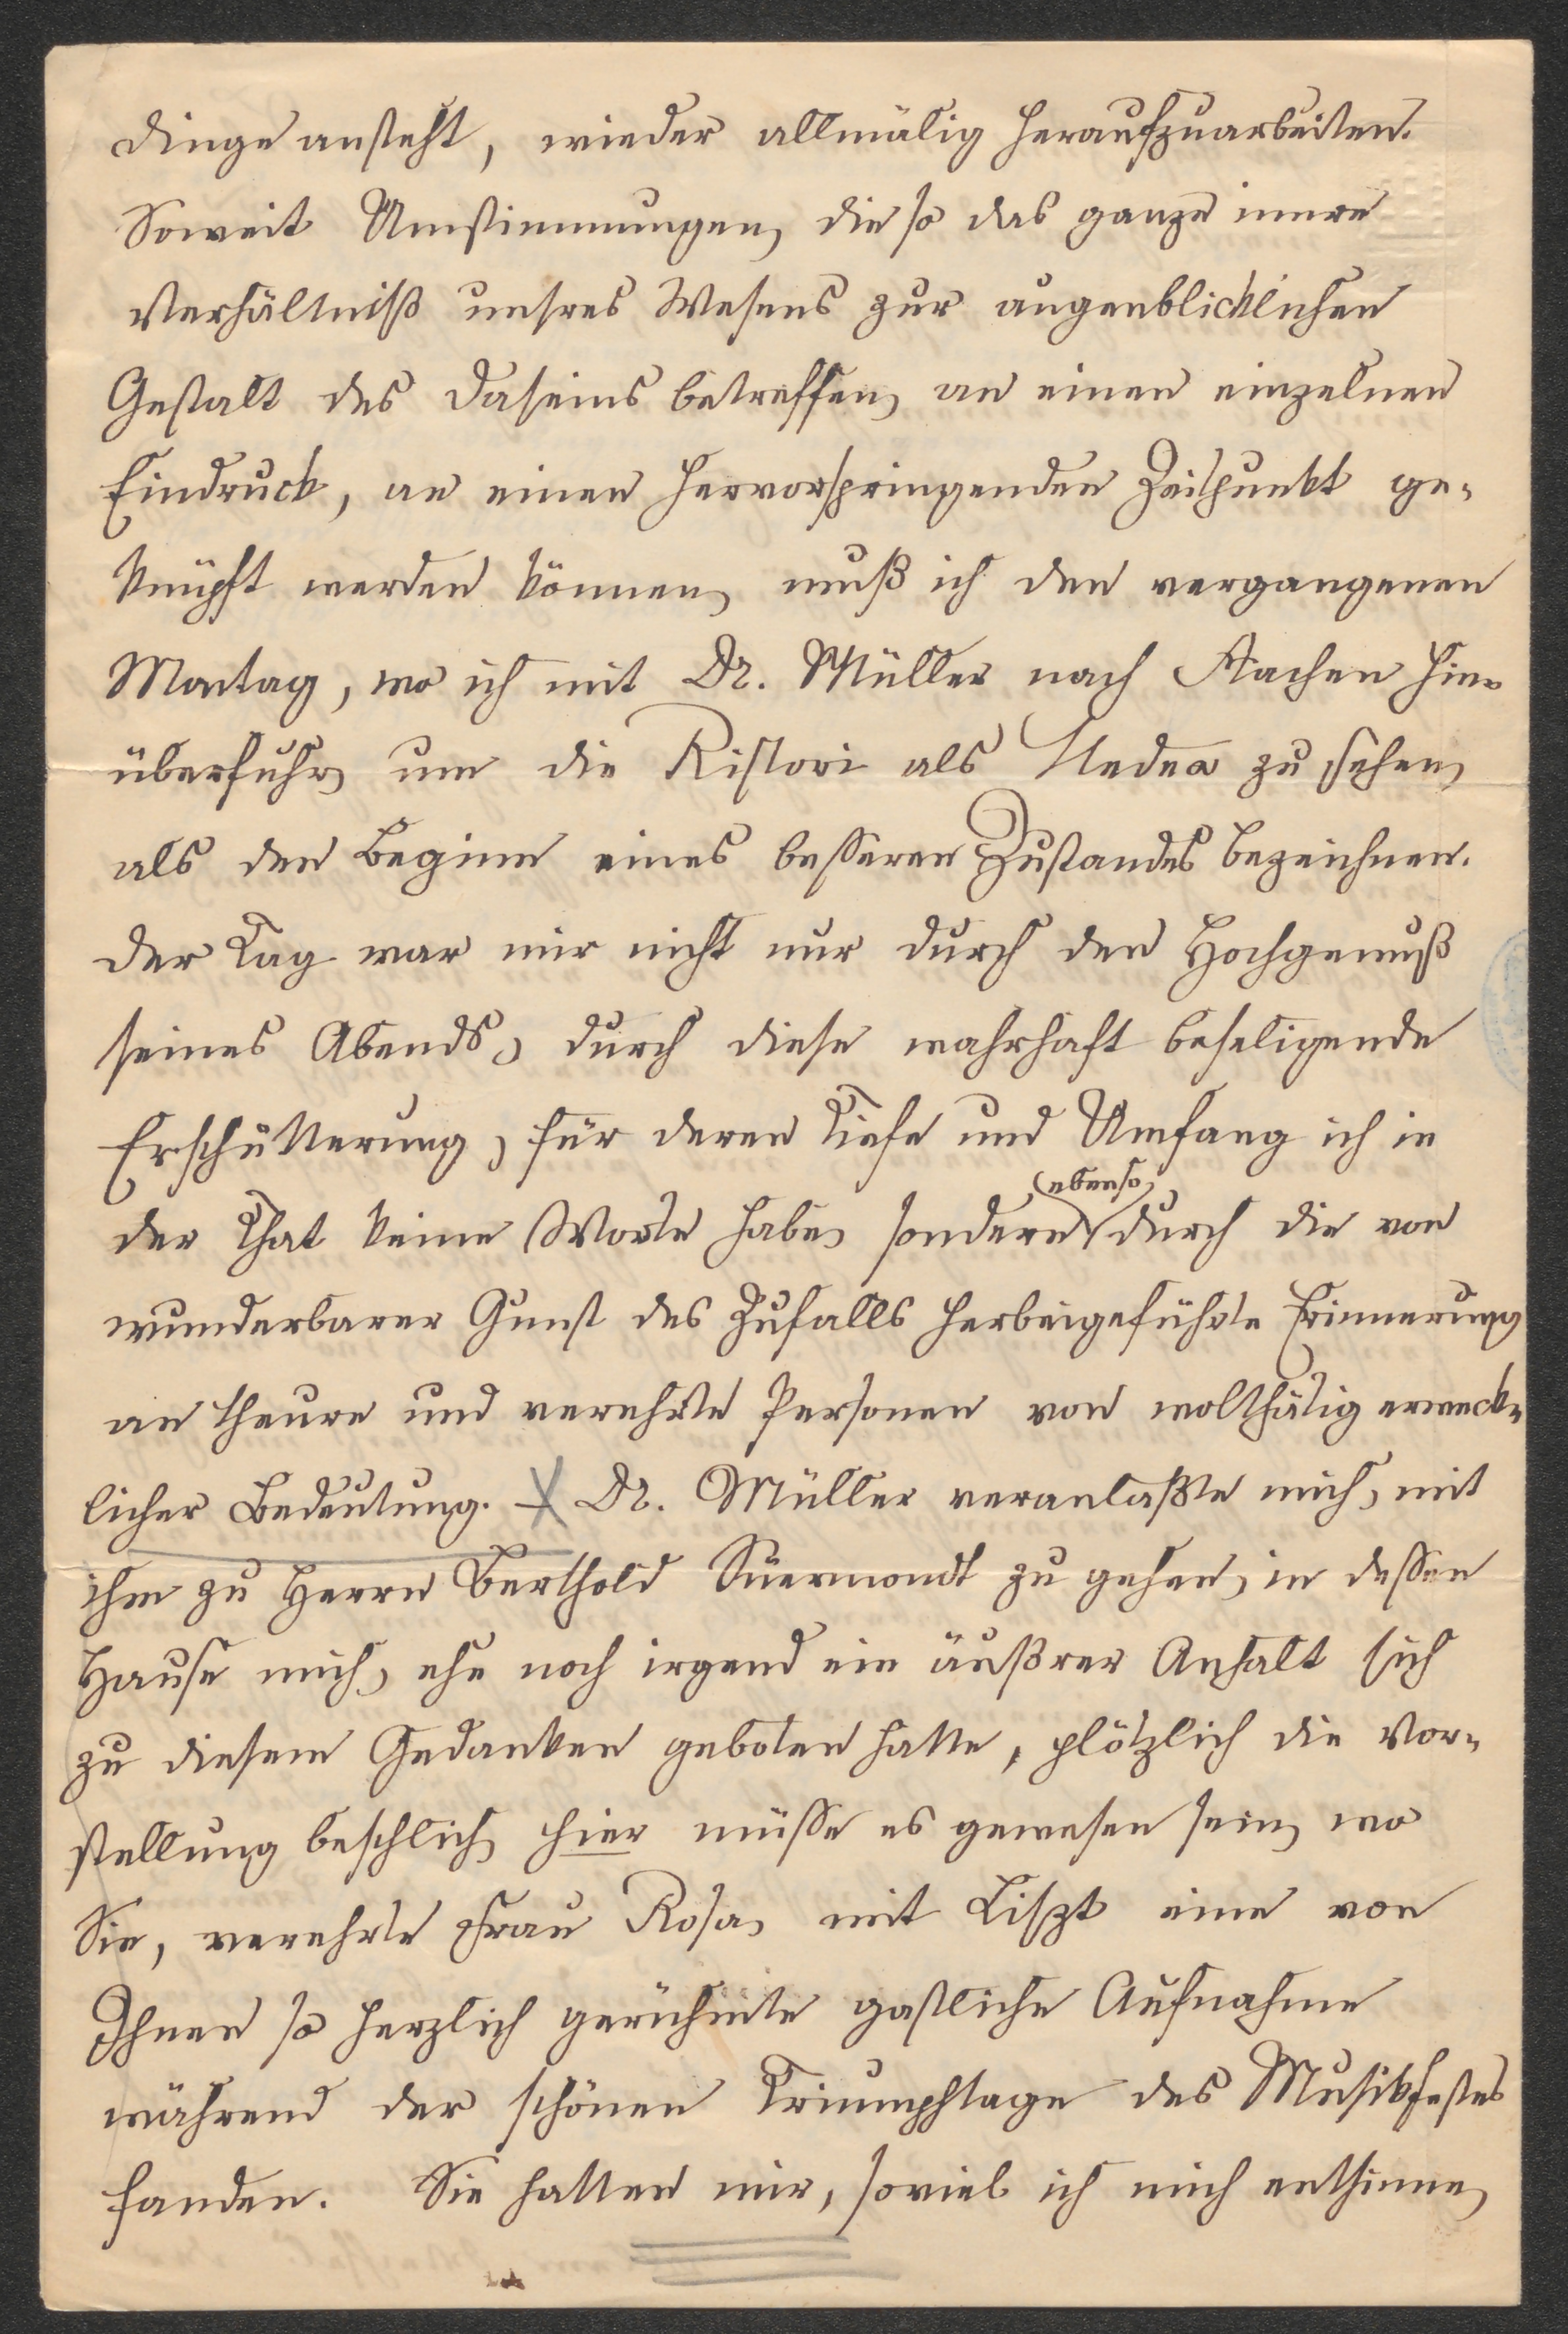 Dinge ansteht, wieder allmälig heraufzuarbeiten.
Soweit Umstimmungen, die so das ganze innere
Verhältniß unsres Wesens zur augenblicklichen
Gestalt des Daseins betreffen, an einen einzelnen
Eindruck, an einen hervorspringenden Zeitpunkt ge-
knüpft werden können, muß ich den vergangenen
Montag, wo ich mit Dr. Müller nach Aachen hin-
überfuhr, um die Ristori als Medea zu sehen,
als den Beginn eines besseren Zustandes bezeichnen.
Der Tag war mir nicht nur durch den Hochgenuß
seines Abends, durch diese wahrhaft beseligende
Erschütterung, für deren Tiefe und Umfang ich in
der That keine Worte habe, sondern ebenso durch die von
wunderbarer Gunst des Zufalls herbeigeführte Erinnerung
an theure und verehrte Personen von wolthätig erweck-
licher Bedeutung. Dr. Müller veranlaßte mich, mit
ihm zu Herrn Berthold Suermondt zu gehen, in dessen
Hause mich, ehe noch irgend ein äußrer Anhalt sich
zu diesem Gedanken geboten hatte, plötzlich die Vor-
stellung beschlich, hier müsse es gewesen sein, wo
Sie, verehrte Frau Rosa, mit Liszt eine von
Ihnen so herzlich gerühmte gastliche Aufnahme
während der schönen Triumphtage des Musikfestes
fanden. Sie hatten mir, soviel ich mich entsinne,